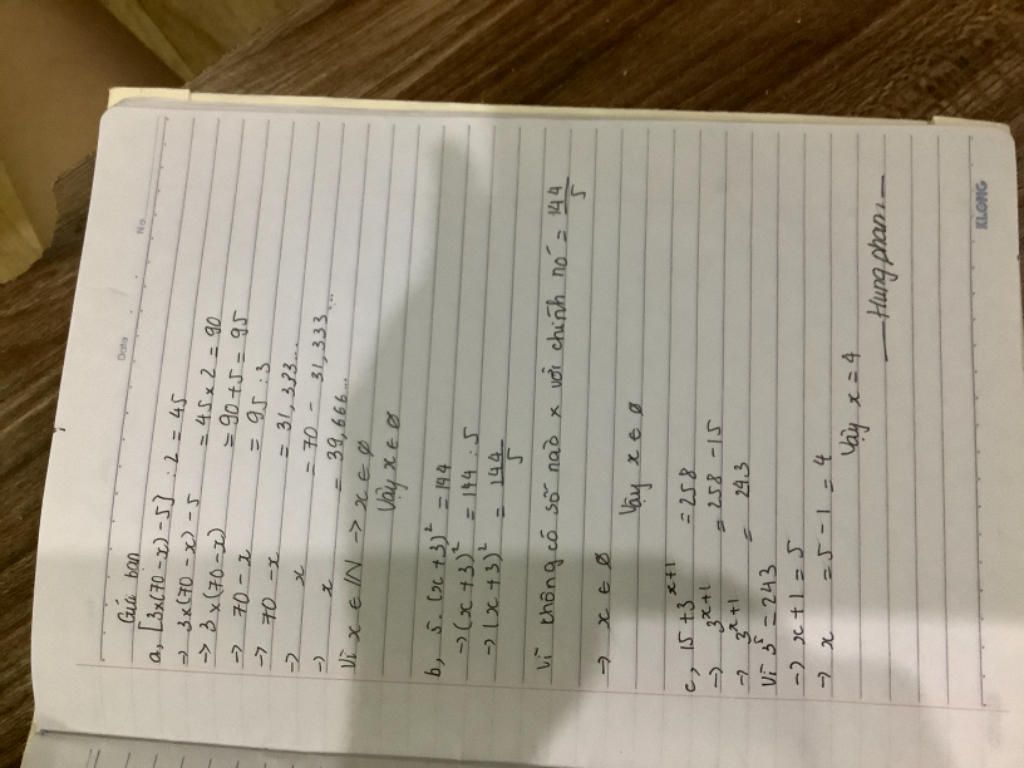 No.
Date
Gửi bạn
a, [3x(70-x)-5] : 2 = 45
→ 3x(70-x)-5 = 45x2 = 90
→ 3x(70-x) = 90+5 = 95
→ 70-x = 95:3
→ 70-x = 31,333...
→ x = 70 - 31,333...
→ x = 39,666...
Vì x ∈ IN → x ∈ Ø
Vậy x ∈ Ø
b, 5.(x+3)² = 144
→ (x+3)² = 144:5
→ (x+3)² = 144/5
Vì không có số nào x với chính nó = 144/5
→ x ∈ Ø
Vậy x ∈ Ø
c, 15+3ˣ⁺¹ = 258
→ 3ˣ⁺¹ = 258-15
→ 3ˣ⁺¹ = 243
Vì 3⁵ = 243
→ x+1 = 5
→ x = 5-1 = 4
Vậy x = 4
—Hungphan—
KLONG